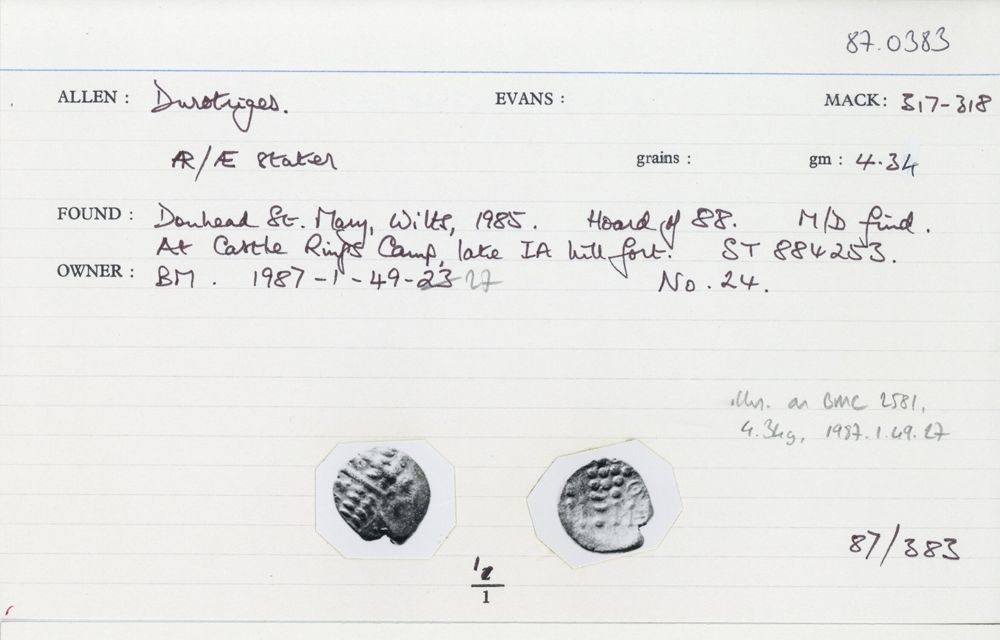 87.0383
ALLEN : Durotriges. EVANS : MACK: 317-318
AR/Æ stater grains : gm : 4.34
FOUND : Donhead St. Mary, Wilts, 1985. Hoard of 88. M/D find.
At Castle Rings Camp, late IA hill fort. ST 884253.
OWNER : BM. 1987-1-49-23 27 No. 24.
illus. as BMC 2581,
4.34g, 1987.1.49.27
87/383
1
1